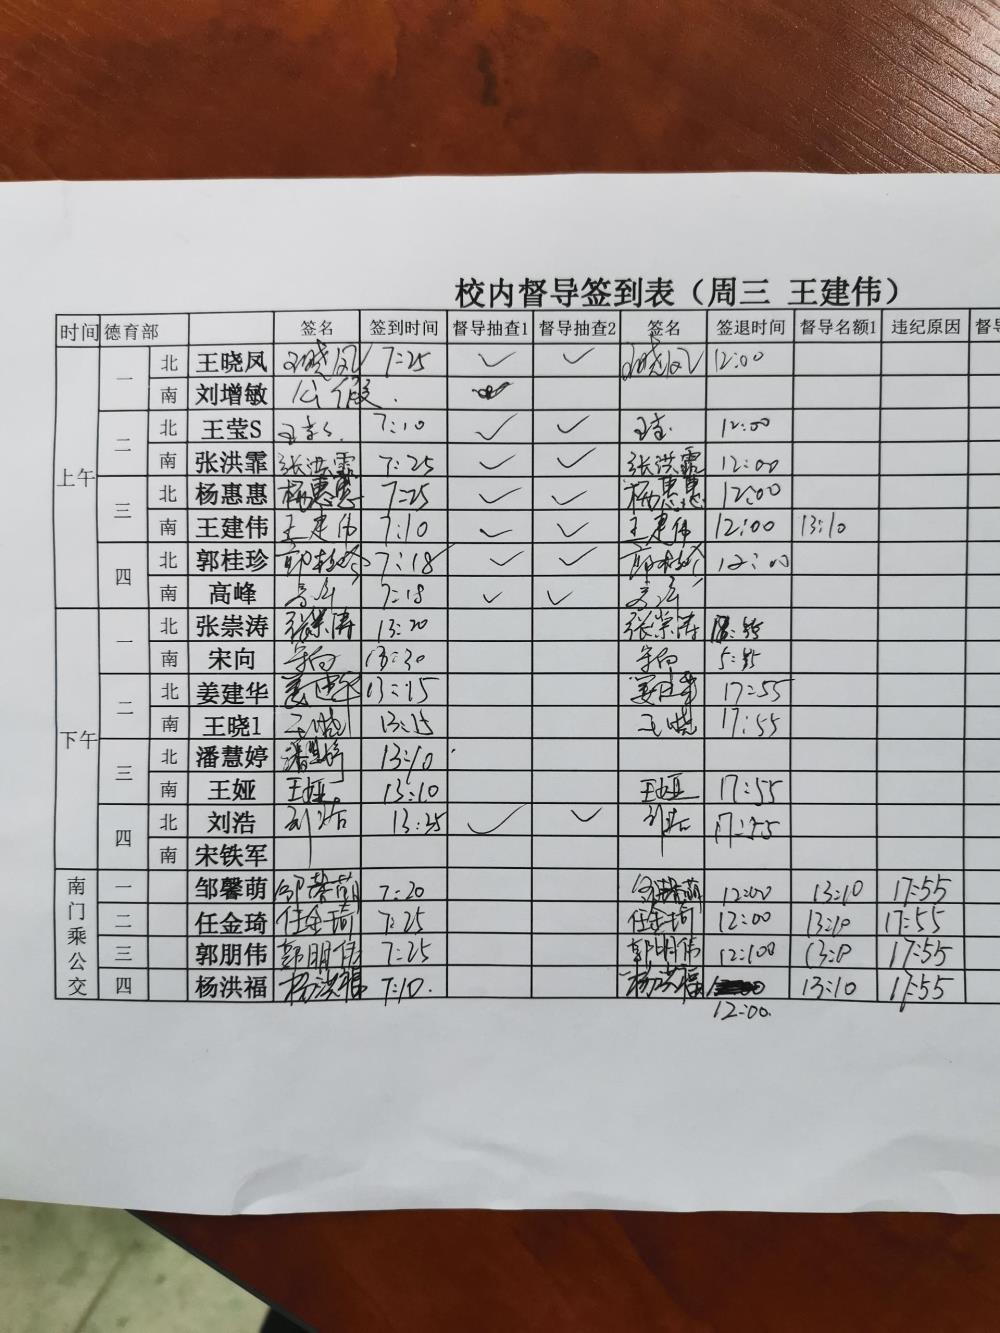 校内督导签到表（周三 王建伟）
时间 德育部 签名 签到时间 督导抽查1 督导抽查2 签名 签退时间 督导名额1 违纪原因 督导
上午 一 北 王晓凤 王晓凤 7:25 ✓ ✓ 王晓凤 12:00
南 刘增敏 公假.
二 北 王莹S 7:10 ✓ ✓ 12:00
南 张洪霏 张洪霏 7:25 ✓ ✓ 张洪霏 12:00
三 北 杨惠惠 杨惠惠 7:25 ✓ ✓ 杨惠惠 12:00
南 王建伟 王建伟 7:10 ✓ ✓ 王建伟 12:00 13:10
四 北 郭桂珍 郭桂珍 7:18 ✓ ✓ 郭桂珍 12:00
南 高峰 高峰 7:18 ✓ ✓ 高峰
下午 一 北 张崇涛 张崇涛 13:20 张崇涛
南 宋向 宋向 13:30 宋向 5:55
二 北 姜建华 姜建华 13:15 姜建华 17:55
南 王晓1 王晓 13:15 王晓 17:55
三 北 潘慧婷 潘慧婷 13:10
南 王娅 王娅 13:10 王娅 17:55
四 北 刘浩 刘浩 ✓ ✓ 刘浩 17:55
南 宋铁军
南门乘公交 一 邹馨萌 邹馨萌 7:20 邹馨萌 12:00 13:10 17:55
二 任金琦 任金琦 7:25 任金琦 12:00 13:10 17:55
三 郭朋伟 郭朋伟 7:25 郭朋伟 12:00 13:10 17:55
四 杨洪福 杨洪福 7:10. 杨洪福 13:10 17:55
12:00.